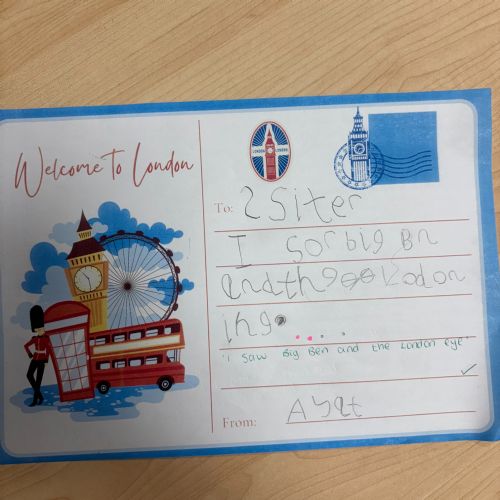 Welcome To London
LONDON LONDON
To: 2 Siter
I sor big Bn
and the London
ihg
'I saw Big Ben and the London eye'
From: Ayat